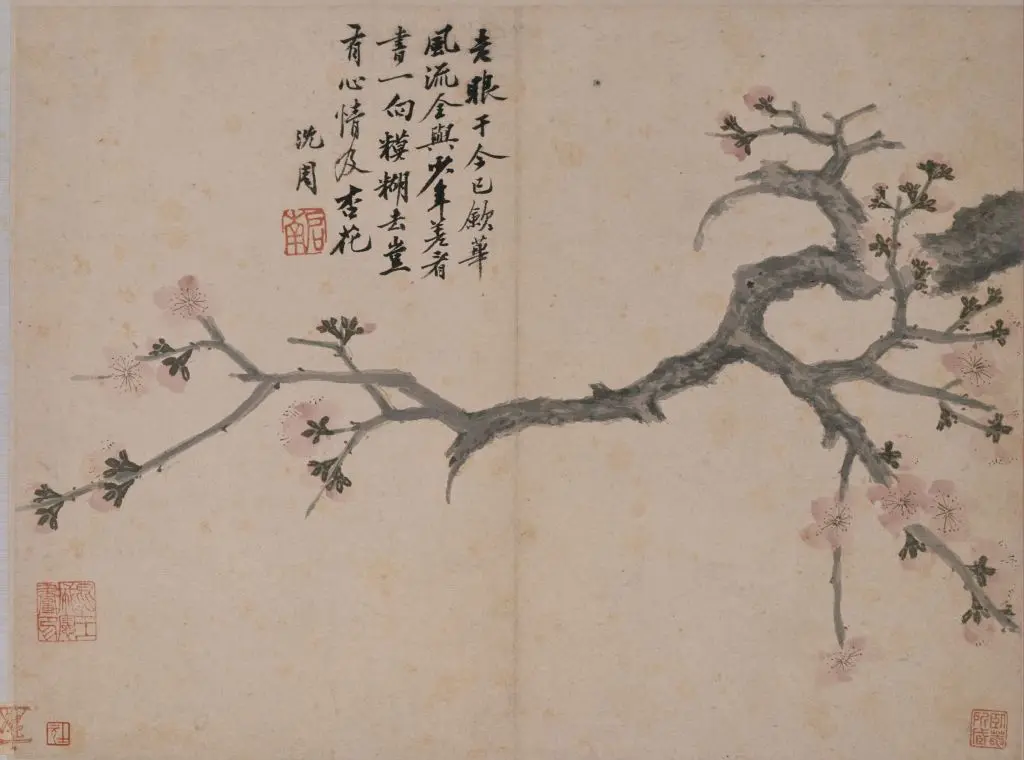 老眼于今已歛華
風流全與少年差看
書一向糢糊去豈
有心情及杏花
沈周
启南
臥菴所藏